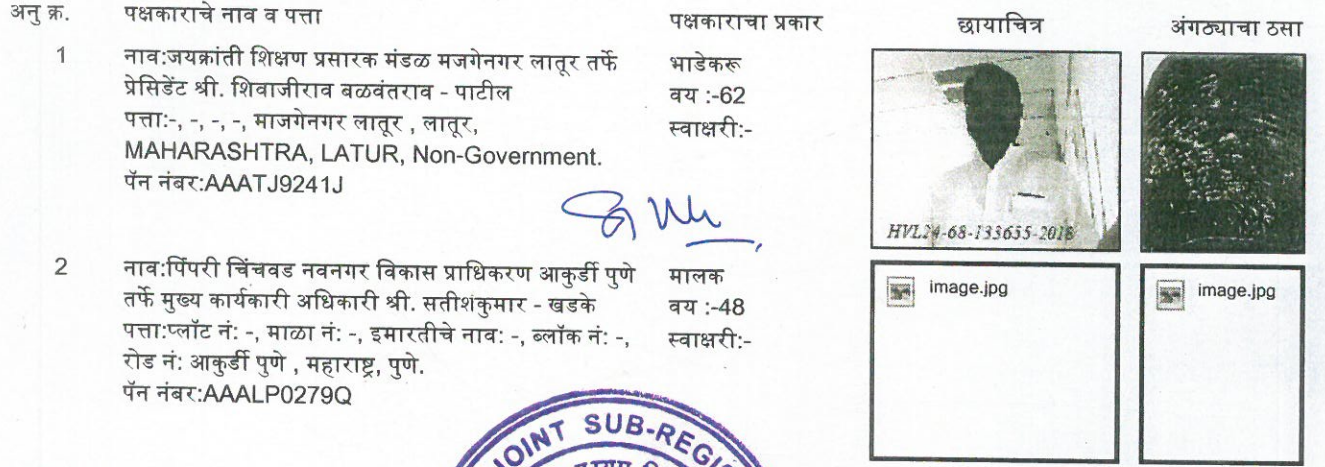 अनु क्र. पक्षकाराचे नाव व पत्ता पक्षकाराचा प्रकार छायाचित्र अंगठ्याचा ठसा
1 नाव:जयक्रांती शिक्षण प्रसारक मंडळ मजगेनगर लातूर तर्फे भाडेकरू
प्रेसिडेंट श्री. शिवाजीराव बळवंतराव - पाटील वय :-62
पत्ता:-, -, -, -, माजगेनगर लातूर , लातूर, स्वाक्षरी:-
MAHARASHTRA, LATUR, Non-Government.
पॅन नंबर:AAATJ9241J
HVL24-68-133655-2018
2 नाव:पिंपरी चिंचवड नवनगर विकास प्राधिकरण आकुर्डी पुणे मालक
तर्फे मुख्य कार्यकारी अधिकारी श्री. सतीशकुमार - खडके वय :-48
पत्ता:प्लॉट नं: -, माळा नं: -, इमारतीचे नाव: -, ब्लॉक नं: -, स्वाक्षरी:-
रोड नं: आकुर्डी पुणे , महाराष्ट्र, पुणे.
पॅन नंबर:AAALP0279Q
image.jpg image.jpg
JOINT SUB-REGIS